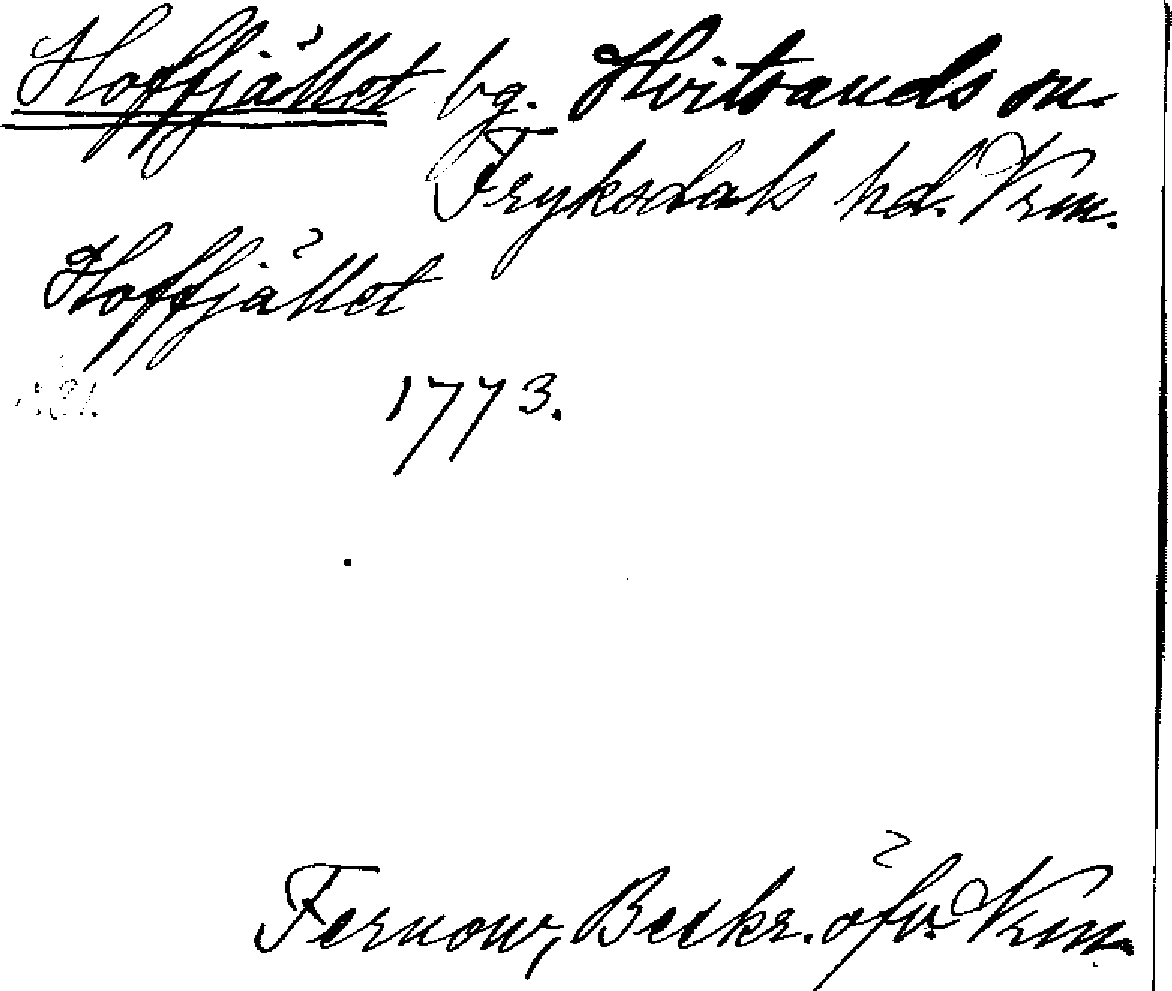 Hoffjället bg. Hvitsands sn
Fryksdals hd. Vrm.
Hoffjället
1773.
Fernow, Beskr. öfv. Vrm.